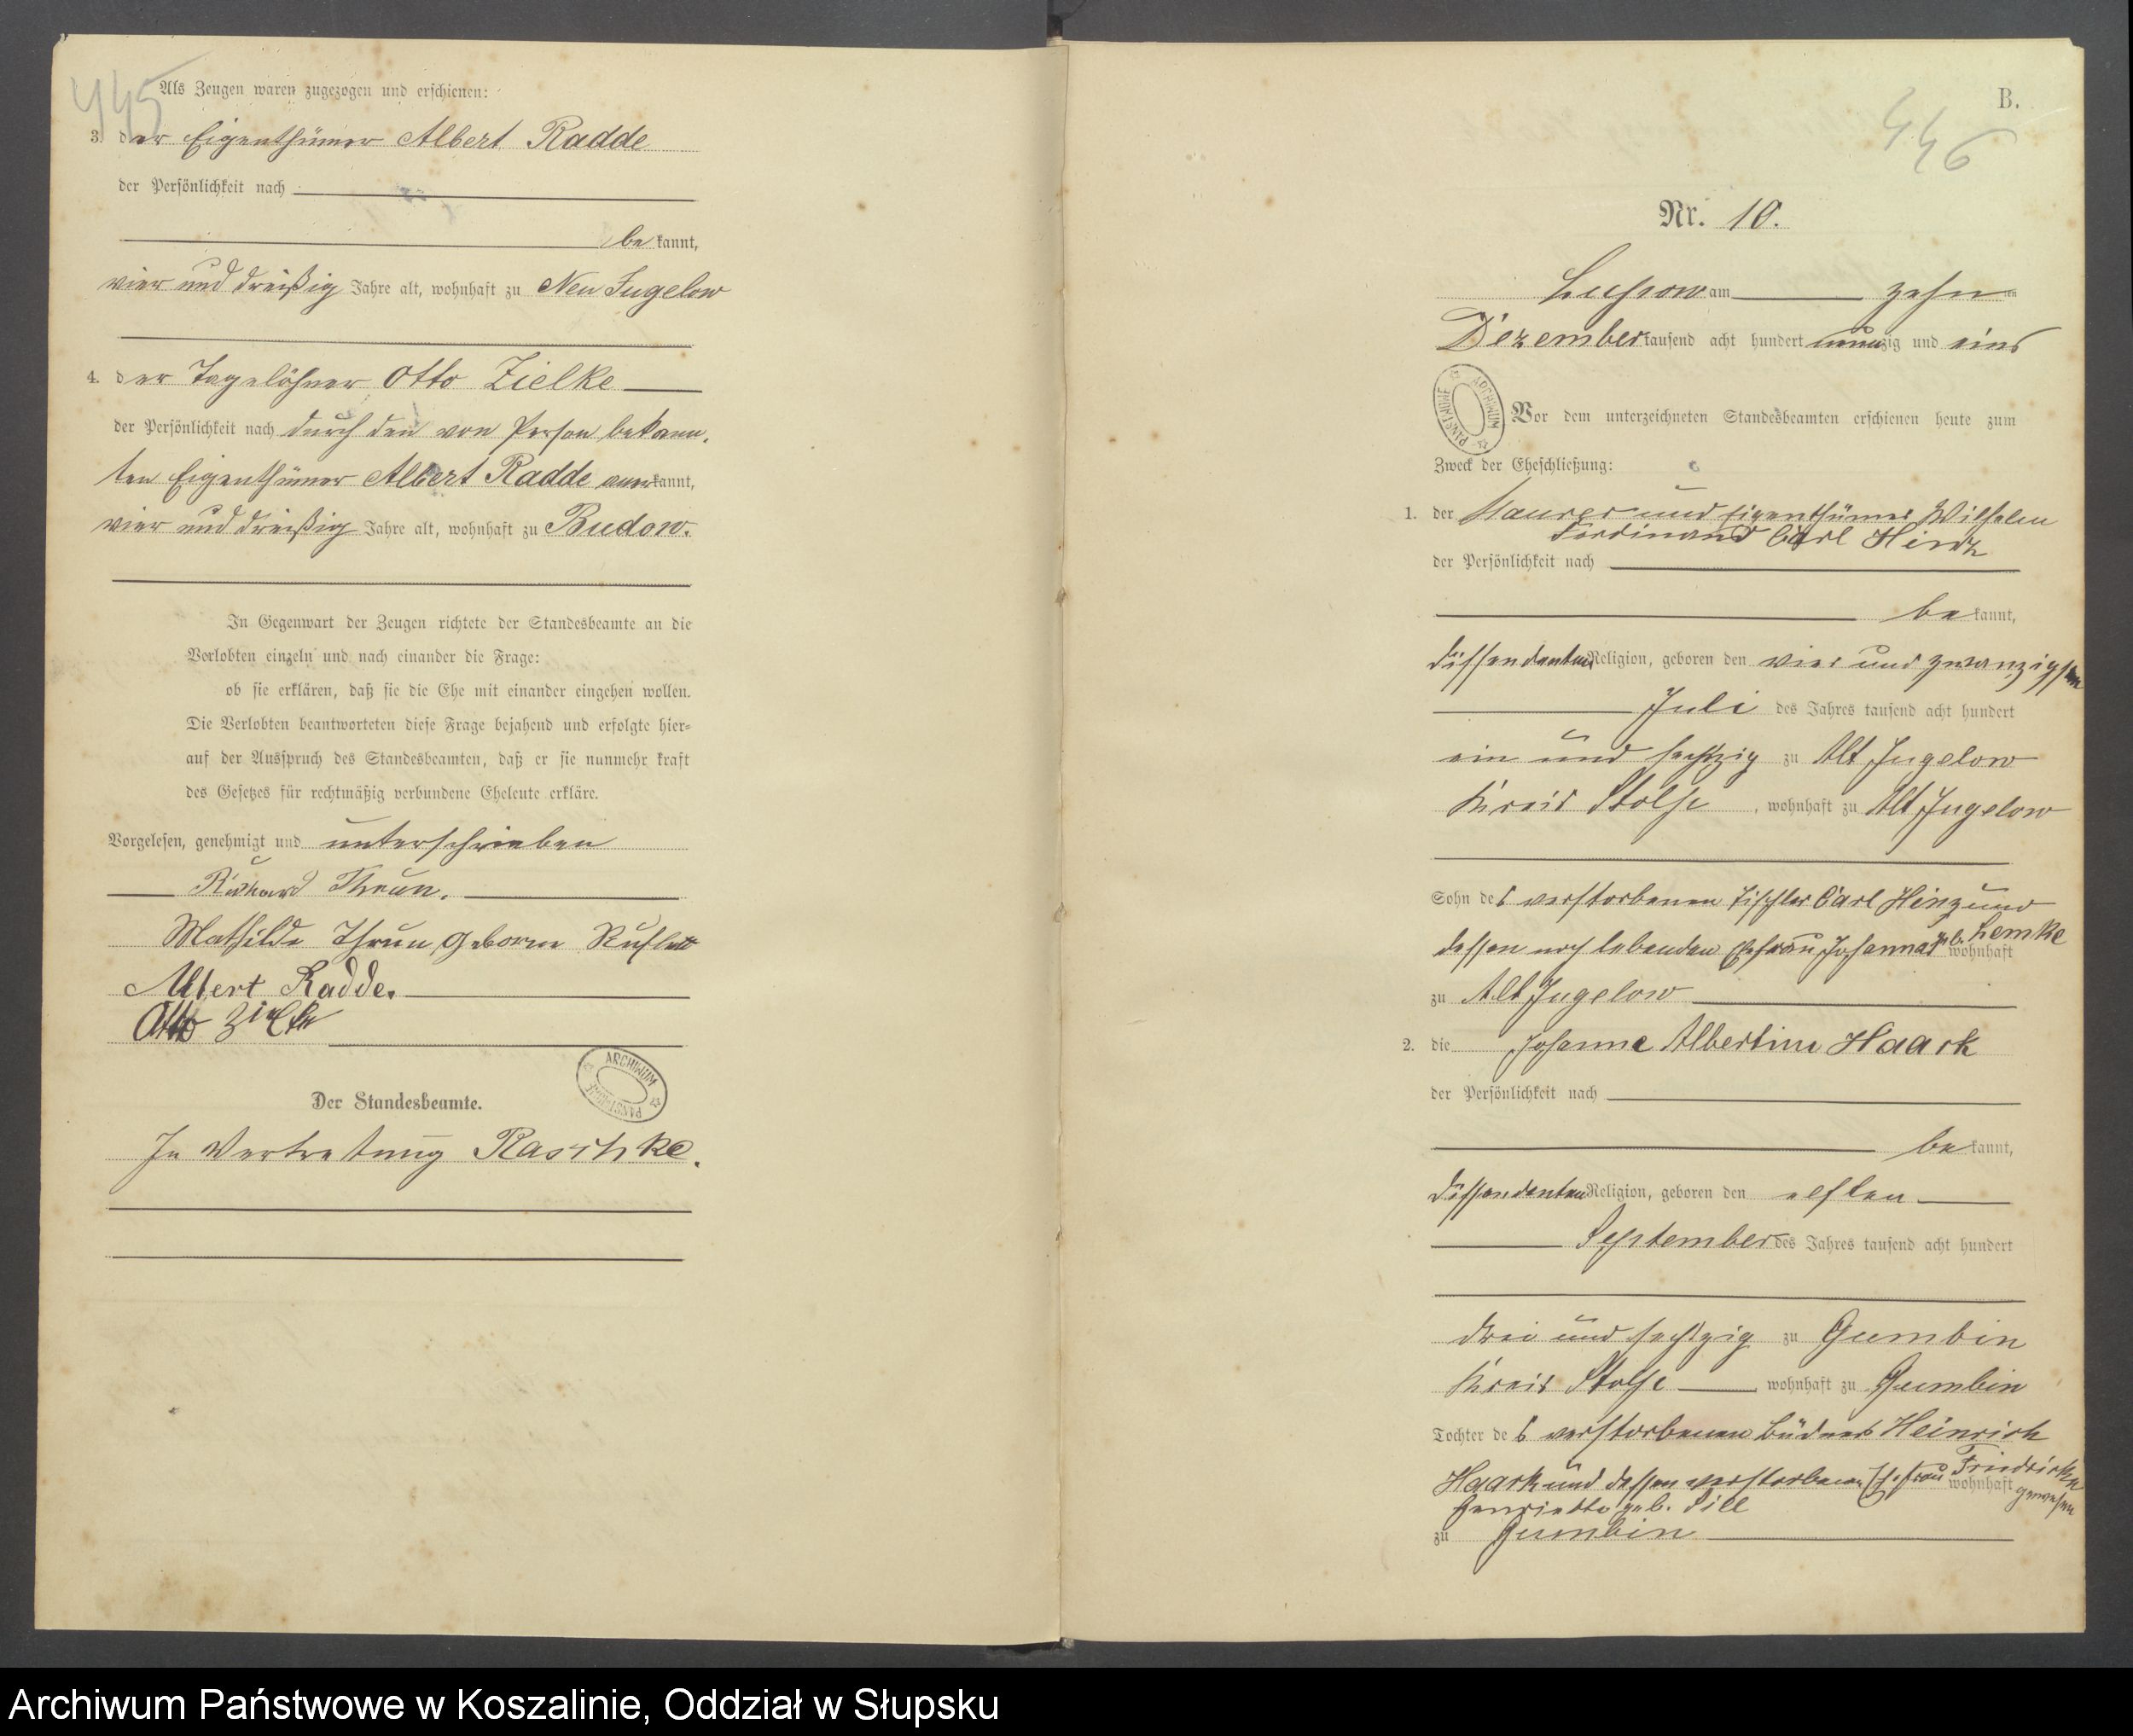 445
Als Zeugen waren zugezogen und erschienen:
3. der Eigenthümer Albert Radde
der Persönlichkeit nach
bekannt,
vier und dreißig Jahre alt, wohnhaft zu Neu Jugelow
4. der Tagelöhner Otto Zielke
der Persönlichkeit nach durch den von Person bekann-
ten Eigenthümer Albert Radde anerkannt,
vier und dreißig Jahre alt, wohnhaft zu Budow.
In Gegenwart der Zeugen richtete der Standesbeamte an die
Verlobten einzeln und nach einander die Frage:
ob sie erklären, daß sie die Ehe mit einander eingehen wollen.
Die Verlobten beantworteten diese Frage bejahend und erfolgte hier-
auf der Ausspruch des Standesbeamten, daß er sie nunmehr kraft
des Gesetzes für rechtmäßig verbundene Eheleute erkläre.
Vorgelesen, genehmigt und unterschrieben
Richard Thrun.
Mathilde Thrun geborne
Albert Radde.
Otto Zielke
ARCHIWUM PAŃSTWOWE
Der Standesbeamte.
In Vertretung Raschke.
B.
446
Nr. 10.
Lupow am zehn ten
Dezember tausend acht hundert neunzig und eins
ARCHIWUM PAŃSTWOWE
Vor dem unterzeichneten Standesbeamten erschienen heute zum
Zweck der Eheschließung:
1. der Maurer und Eigenthümer Wilhelm
Ferdinand Carl Hinz
der Persönlichkeit nach
bekannt,
dissendenten Religion, geboren den vier und zwanzigsten
Juli des Jahres tausend acht hundert
ein und sechzig zu Alt Jugelow
Kreis Stolp, wohnhaft zu Alt Jugelow
Sohn des verstorbenen Tischler Carl Hinz und
dessen noch lebenden Ehefrau Johanna geb. Lemke
wohnhaft
zu Alt Jugelow
2. die Johanne Albertine Haack
der Persönlichkeit nach
bekannt,
dissendenten Religion, geboren den elften
September des Jahres tausend acht hundert
drei und sechzig zu Gumbin
Kreis Stolp wohnhaft zu Gumbin
Tochter des verstorbenen Büdner Heinrich
Haack und dessen verstorbenen Ehefrau Friedricke
Henriette geb. Sill wohnhaft gewesen
zu Gumbin
Archiwum Państwowe w Koszalinie, Oddział w Słupsku